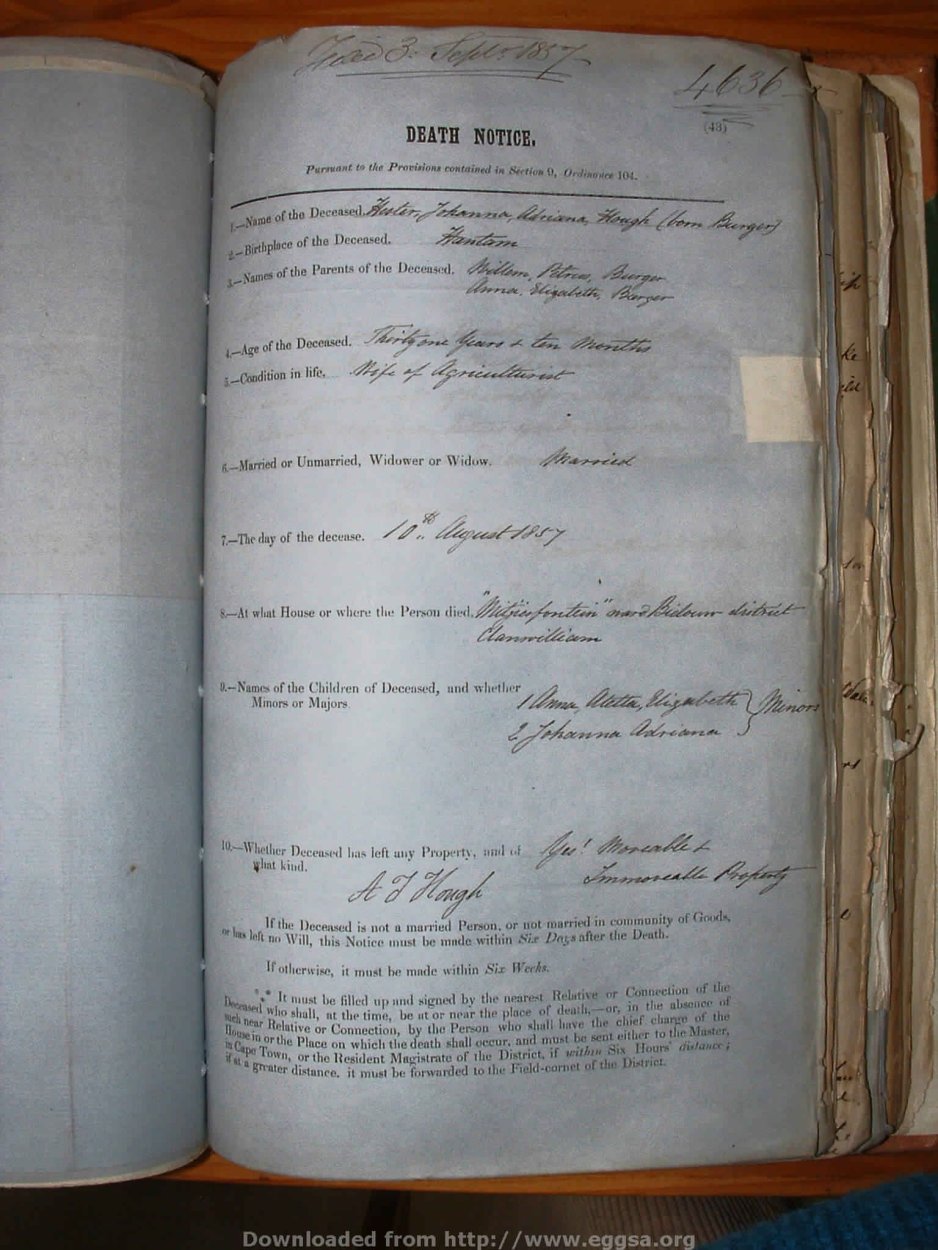 Filed 3. Septr 1857
4636
(43)
DEATH NOTICE.
Pursuant to the Provisions contained in Section 9, Ordinance 104.
1.—Name of the Deceased. Hester, Johanna, Adriana, Hough (born Burger)
2.—Birthplace of the Deceased. Hantam
3.—Names of the Parents of the Deceased. Willem, Petrus, Burger
Anna, Elizabeth, Burger
4.—Age of the Deceased. Thirty one Years & ten Months
5.—Condition in life. Wife of Agriculturist
6.—Married or Unmarried, Widower or Widow. Married
7.—The day of the decease. 10th August 1857
8.—At what House or where the Person died. ward Bidouw district
Clanwilliam
9.—Names of the Children of Deceased, and whether
Minors or Majors
1 Anna, Aletta, Elizabeth } Minors
2 Johanna Adriana
10.—Whether Deceased has left any Property, and of
what kind.
Yes! Moveable &
Immoveable Property
A J Hough
If the Deceased is not a married Person, or not married in community of Goods,
or has left no Will, this Notice must be made within Six Days after the Death.
If otherwise, it must be made within Six Weeks.
*** It must be filled up and signed by the nearest Relative or Connection of the
Deceased who shall, at the time, be at or near the place of death,—or, in the absence of
such near Relative or Connection, by the Person who shall have the chief charge of the
House in or the Place on which the death shall occur, and must be sent either to the Master,
in Cape Town, or the Resident Magistrate of the District, if within Six Hours' distance;
if at a greater distance, it must be forwarded to the Field-cornet of the District.
Downloaded from http://www.eggsa.org